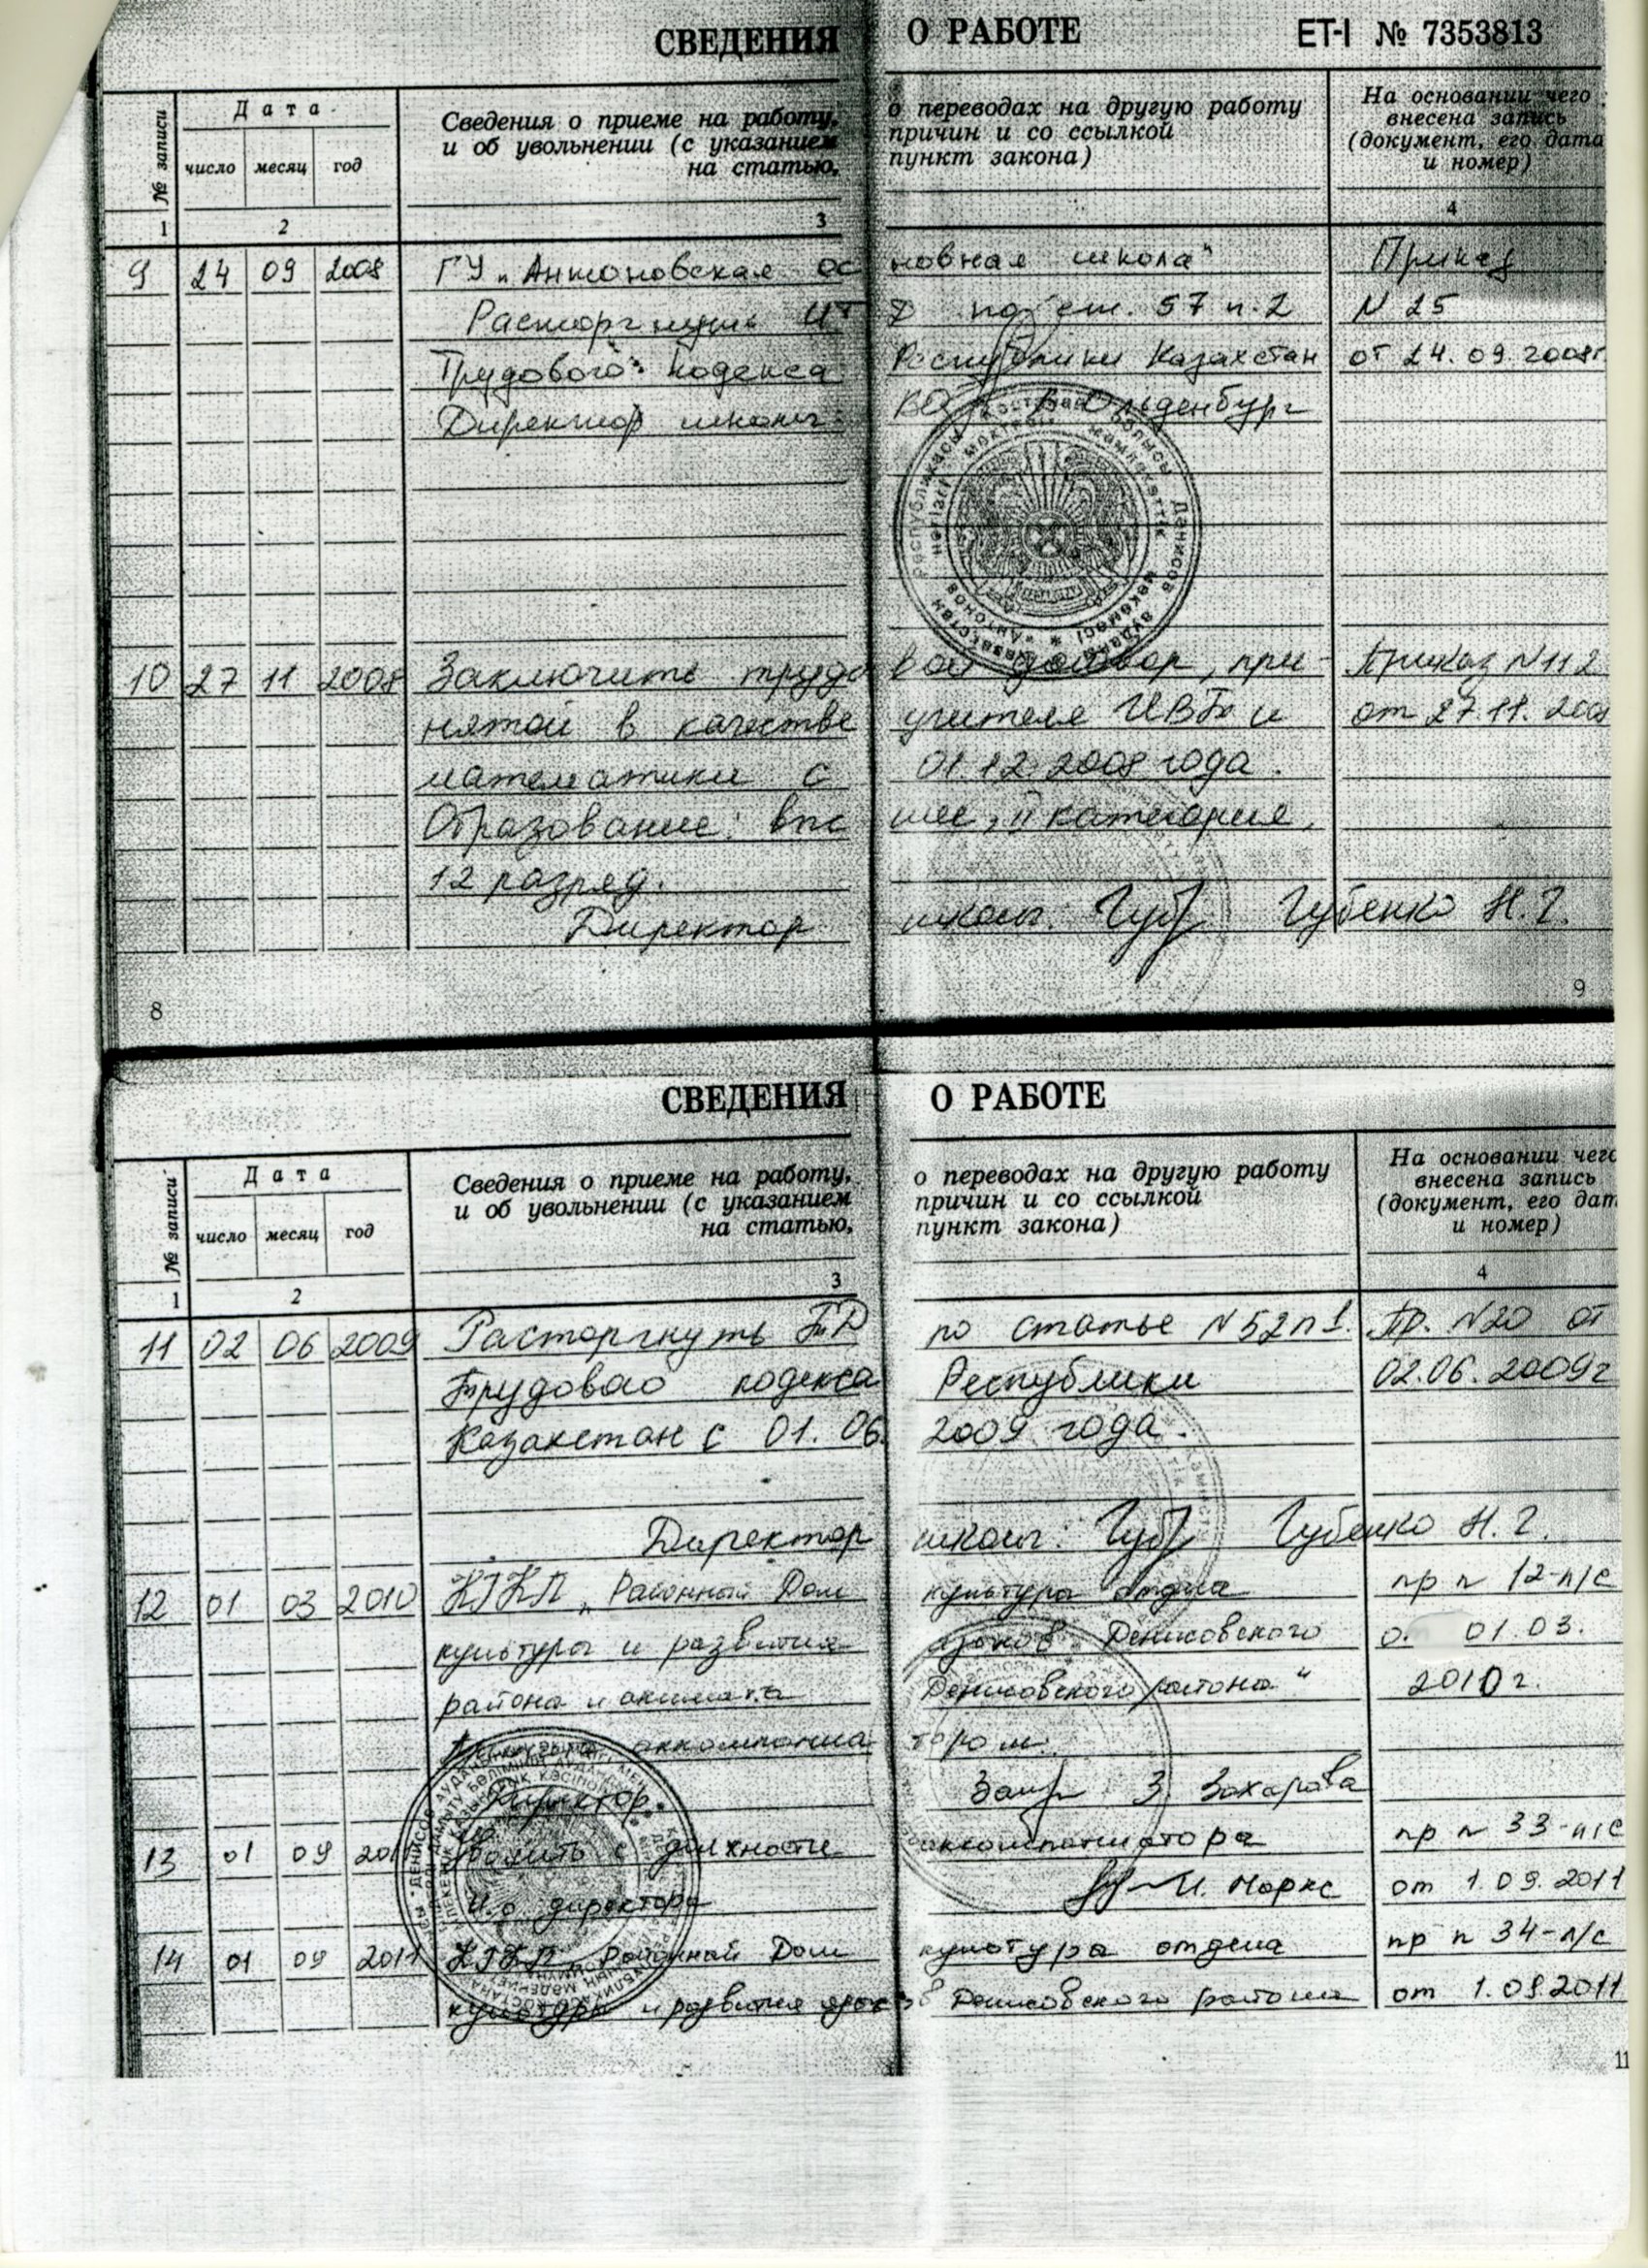 СВЕДЕНИЯ О РАБОТЕ ET-I № 7353813
№ записи
Дата
число месяц год
Сведения о приеме на работу, о переводах на другую работу
и об увольнении (с указанием причин и со ссылкой
на статью, пункт закона)
На основании чего
внесена запись
(документ, его дата
и номер)
1 2 3 4
9 24 09 2008 ГУ „Антоновская основная школа" Приказ
по ст. 57 п. 2 N 25
Трудового Кодекса Республики Казахстан от 24.09.2008г
Директор школы: В Ольденбург
10 27 11 2008 Заключить трудовой договор, при- Приказ N 112
нятой в качестве учителя ИВТ и от 27.11.2008
математики с 01.12.2008 года.
Образование: высшее, II категория,
12 разряд.
Директор школы: Губенко Н. Г.
8 9
СВЕДЕНИЯ О РАБОТЕ
№ записи
Дата
число месяц год
Сведения о приеме на работу, о переводах на другую работу
и об увольнении (с указанием причин и со ссылкой
на статью, пункт закона)
На основании чего
внесена запись
(документ, его дат
и номер)
1 2 3 4
11 02 06 2009 Расторгнуть ТД по статье N 52 п 1. Пр. N20 от
Трудового кодекса Республики 02.06.2009г
Казахстан с 01.06. 2009 года.
Директор школы: Губенко Н. Г.
12 01 03 2010 КГКП „Районный Дом культуры отдела пр n 12-п/с
культуры и развития языков Денисовского 01.03.
района и акимата Денисовского района" 2010г.
аккомпаниатором.
Директор З Захарова
13 01 09 2011 Уволить с должности аккомпаниатора пр n 33-п/с
И.о директора И. Маркс от 1.09.2011
14 01 09 2011 КГКП „Районный Дом культуры отдела пр n 34-п/с
культуры и развития языков Денисовского района от 1.09.2011
11